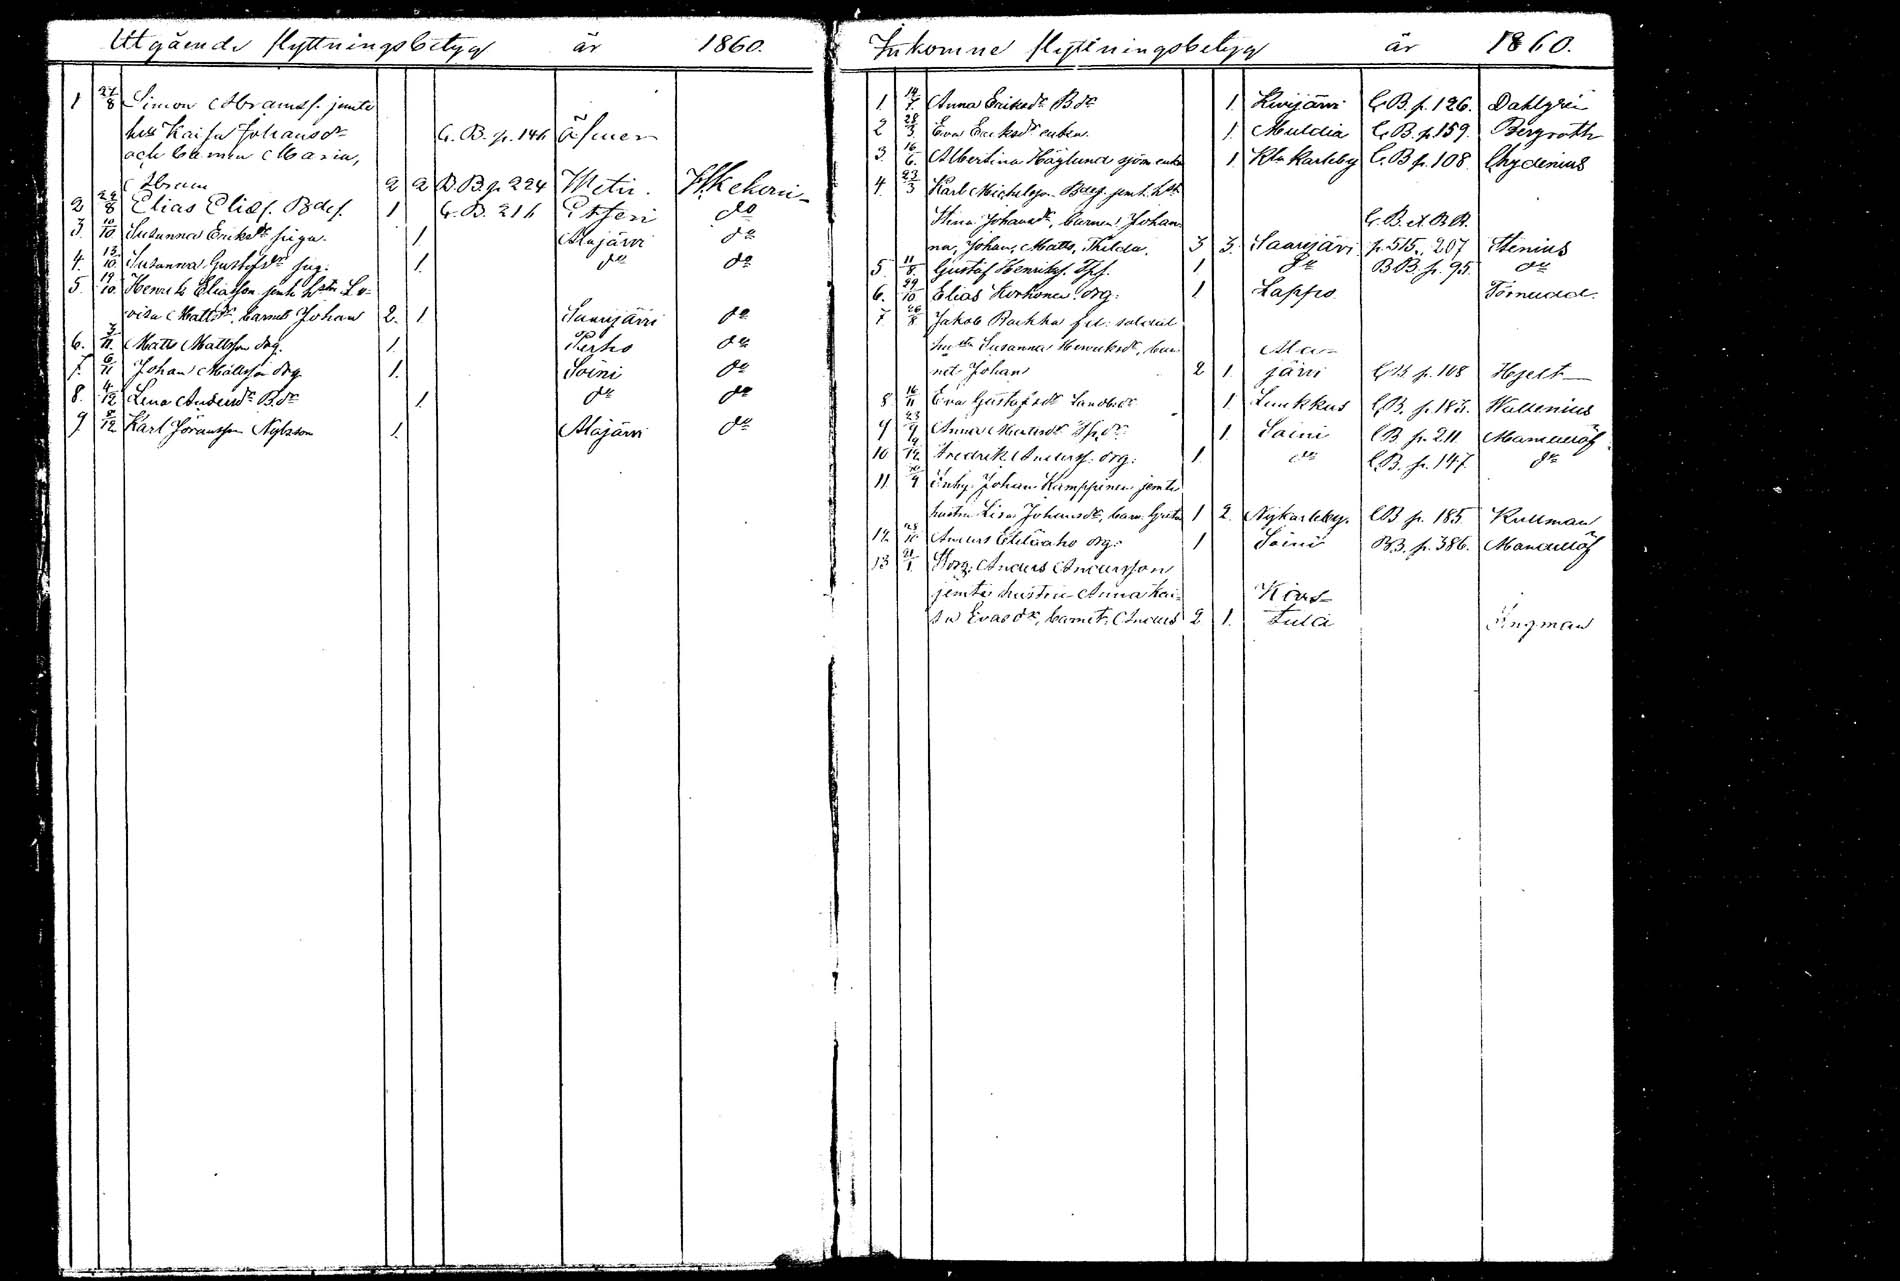 Utgående flyttningsbetyg år 1860.
1 27/8 Simon Abramss. jemte
hu Kaisa Johansdr C.B. p. 146
och barnen Maria,
Abram 2 2 B.B. p 224
2 Elias Eliæs. Bdes. 1 C.B. 216 do
3. 10/10 Susanna Eriksdr piga. 1. Alajärvi do
4. 13/10 Susanna Gustafsdr pig. 1. do do
5. 19/10 Henrik Eliasson jemte hstn Lo-
visa Mattsdr, barnet Johan 2. 1 Saarijärvi do
6. 3/11 Matts Mattsson drg. 1. Perho do
7. 6/11 Johan Mattsson drg 1. Soini do
8. 4/12 Lena Andersdr B.dr 1. do do
9 8/12 Karl Göransson 1. Alajärvi do
Inkomne flyttningsbetyg år 1860.
1. 14/7 Anna Eriksdr Bdr 1. Kivijärvi C.B. p. 126. Dahlgren
2 28/3 Eva Eriksdr enka. 1. Muldia C.B. p 159. Bergroth
3. 16/6. Albertina Höglund sjöm. enka 1. Kla Karleby C.B. p. 108 Chydenius
4. 23/3 Karl Michelsson Bdes. jemt. hst
Stina Johansdr, barnen Johan- C.B. et B.B.
na, Johan, Matts, Thilda. 3 3. Saarijärvi p. 515, 207 Stenius
5 11/8. Gustaf Henrikss. 1 do B.B. p. 95. do
6. 29/10 Elias Korhonen drg. 1 Lappo Törnudd.
7 26/8 Jakob f.d. soldat
hu Susanna Henriksdr, bar- Ala-
net Johan 2 1. järvi C.B p. 108 Hjelt
8 16/11 Eva Gustafsdr 1. C.B. p. 183. Waldenius
9 23/9 Anna Mattsdr 1. Soini C.B p. 211. Mandellöf
10 Fredrik Anderss. drg. 1. do C.B. p. 147. do
11 Inhy. Johan Kamppinen jemte
hustru Lisa Johansdr, barn Greta 1 2. Nykarleby. C.B p. 185. Kullman
12. 28/10 Anders Eteläaho drg. 1 Soini B.B. p. 386. Mandellöf
13 21/1. Anders Andersson
jemte hustru Anna Kai- Kars-
sa Evasdr, barnet Anders 2 1. tula Ingman